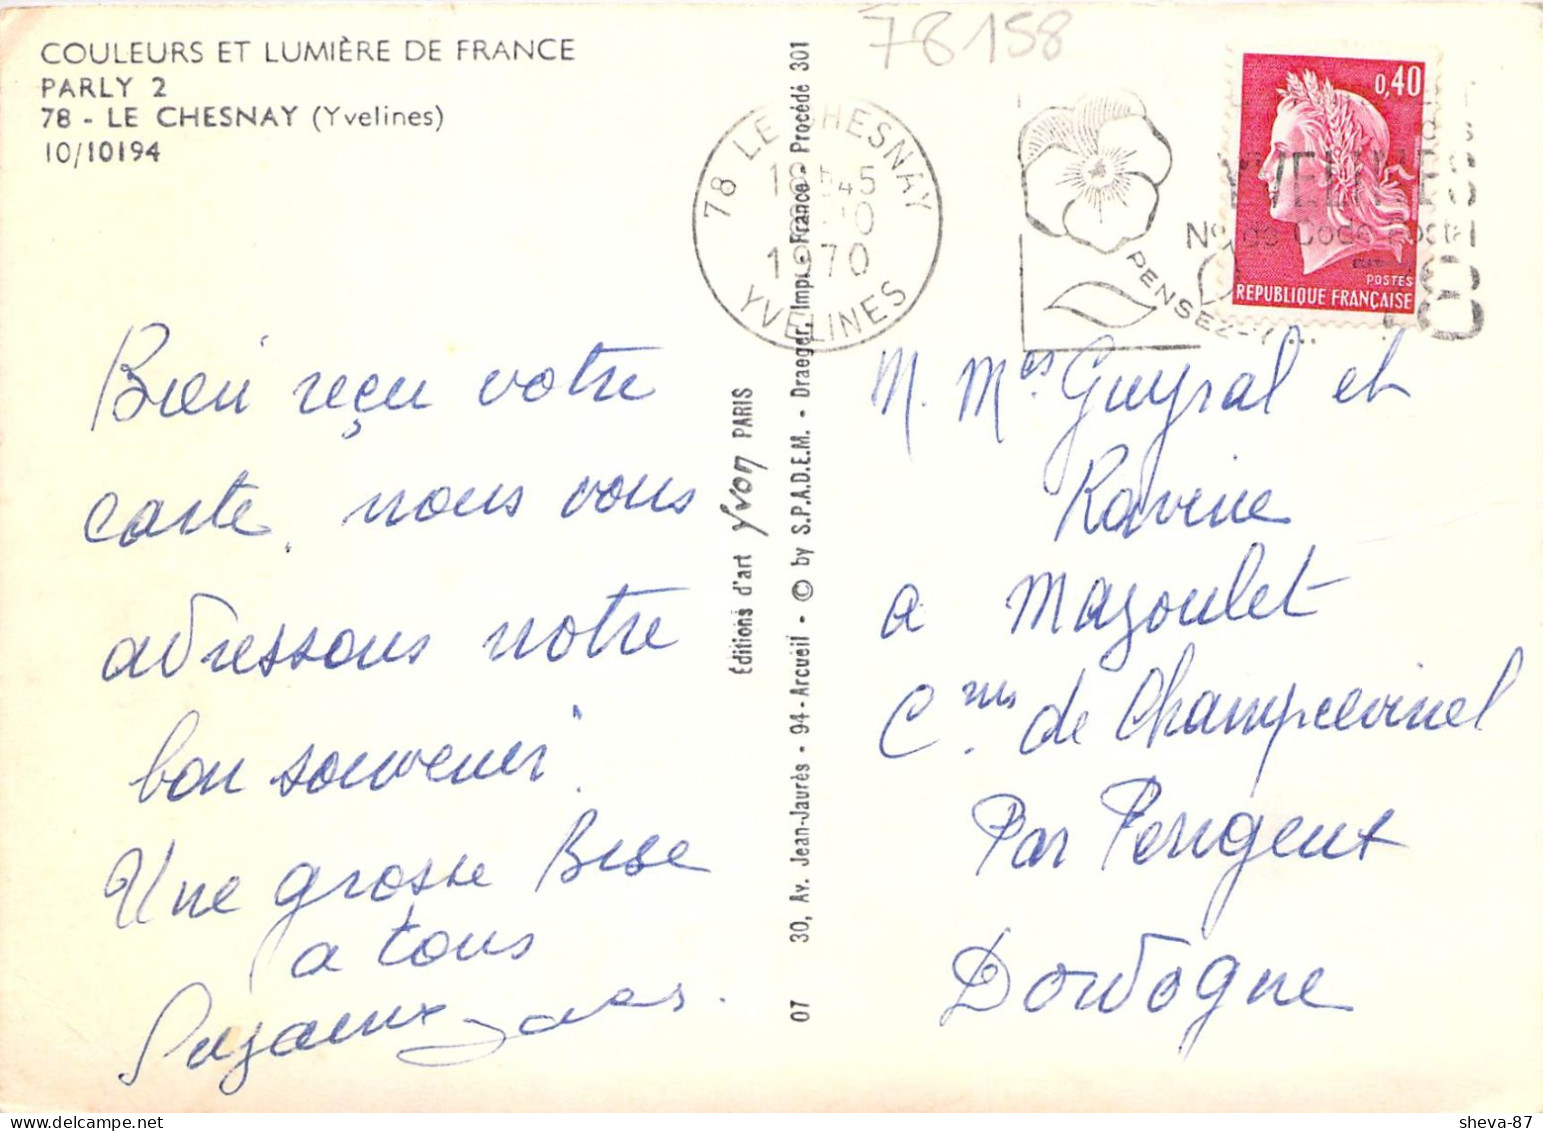 COULEURS ET LUMIÈRE DE FRANCE
PARLY 2
78 - LE CHESNAY (Yvelines)
10/10194
78158
78 LE CHESNAY
1970
YVELINES
PENSEZ-Y...
YVELINES
N° de Code Postal
78
0,40
POSTES
REPUBLIQUE FRANÇAISE
Bien reçu votre
carte, nous vous
adressons notre
bon souvenir.
Une grosse Bise
a tous
07 30, Av. Jean-Jaurès - 94 - Arcueil - © by S.P.A.D.E.M. - Draeger, Imp. - France - Procédé 301
Editions d'art Yvon PARIS
M. Mes Guyral et
Ravine
a Mazoulet
Cne de Champcevinel
Par Perigeux
Dordogne
sheva-87